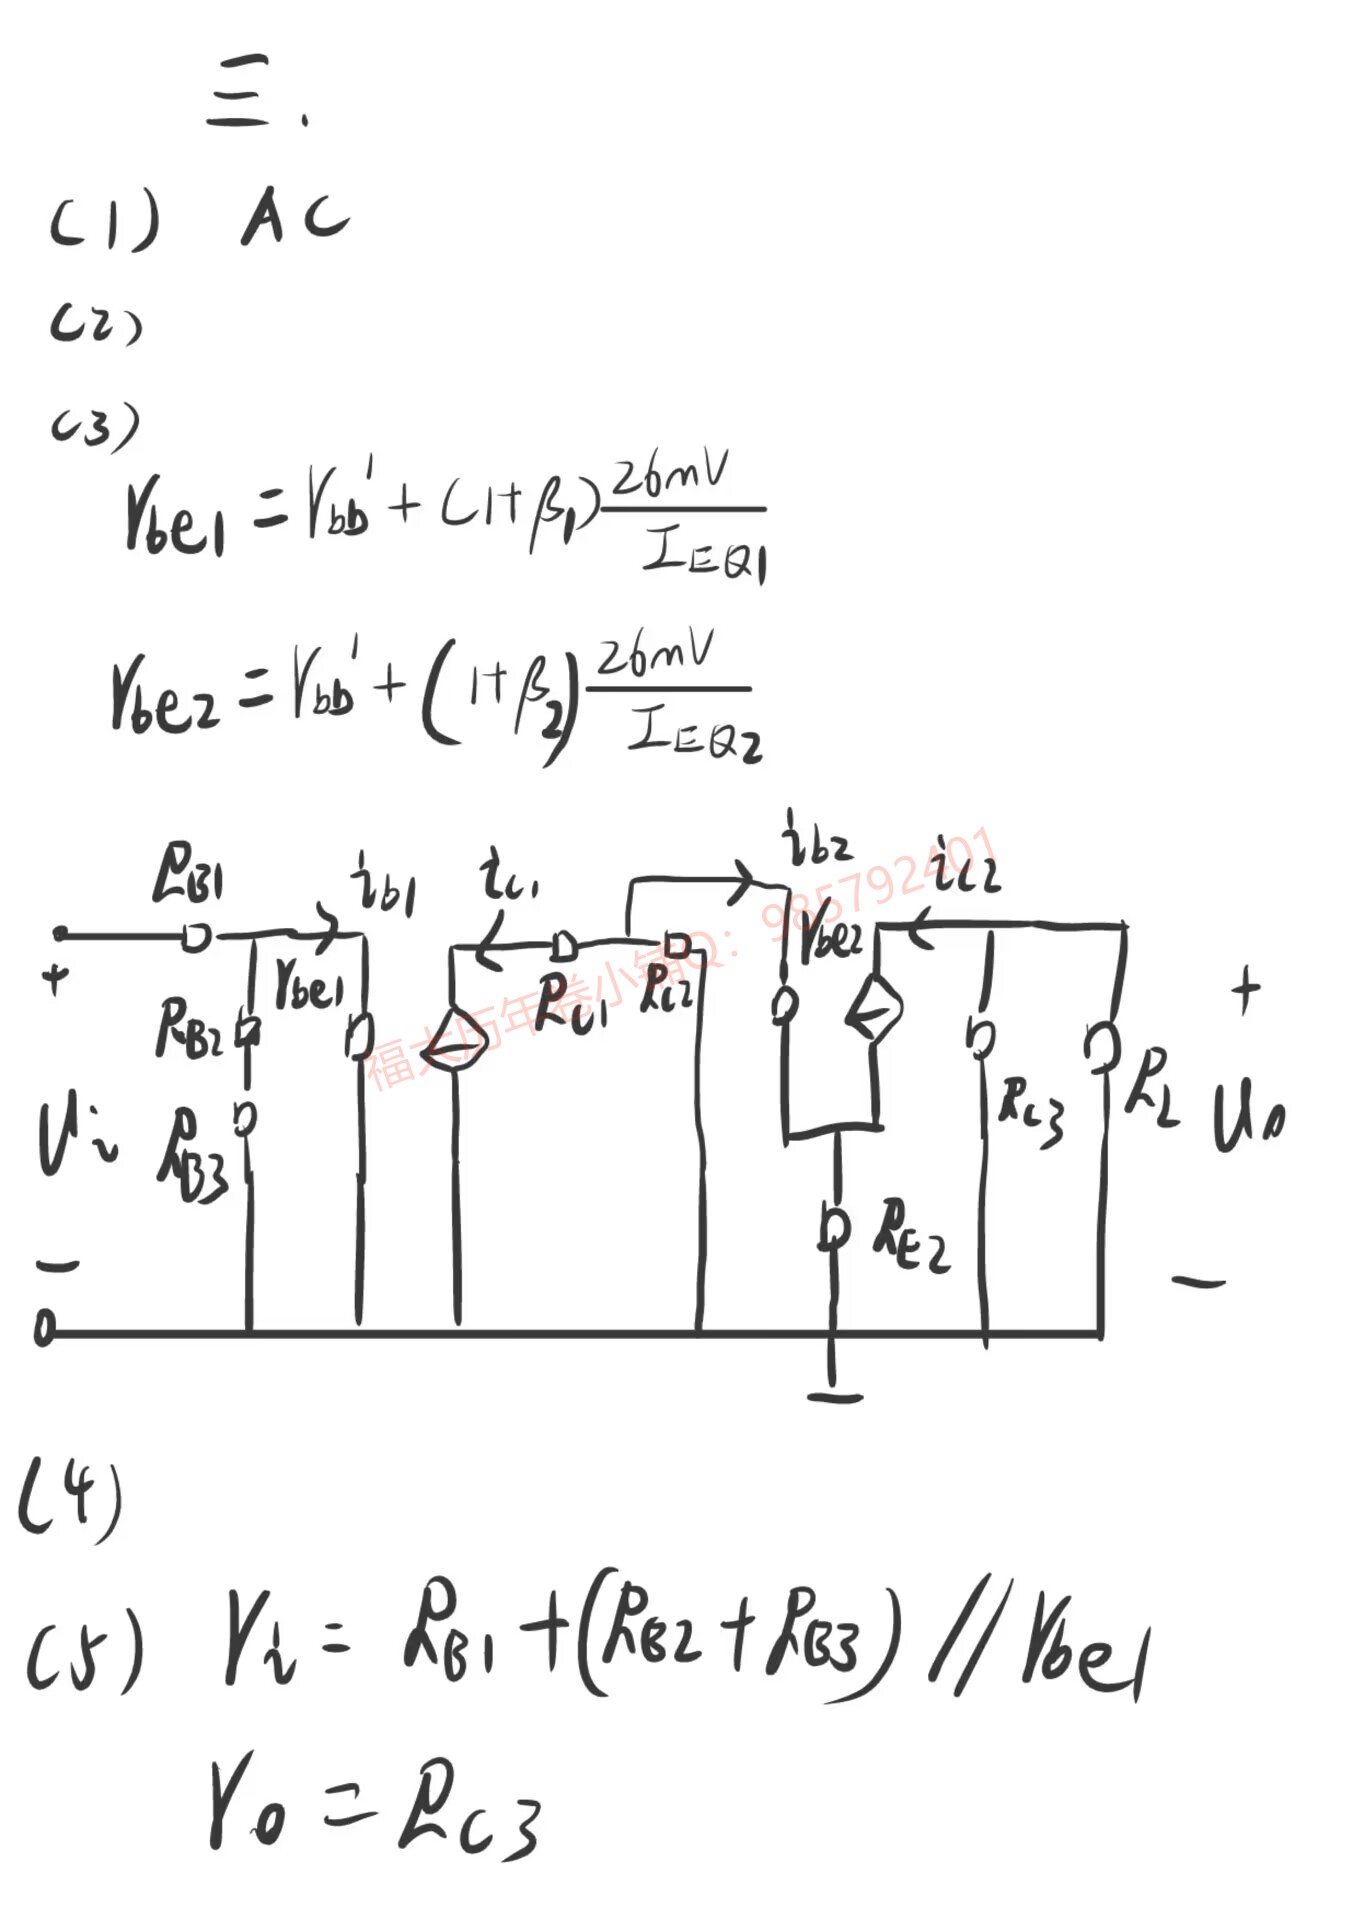 三.
(1) AC
(2)
(3)
rbe1 = rbb' + (1+β1) 26mV / IEQ1
rbe2 = rbb' + (1+β2) 26mV / IEQ2
RB1 ib1 ic1 ib2 ic2
rbe1 rbe2
+ RB2 RC1 RC2 +
Ui RB3 RC3 RL Uo
RE2
− −
福大历年卷小铺Q：985792401
(4)
(5) ri = RB1 + (RB2 + RB3) // rbe1
ro = RC3